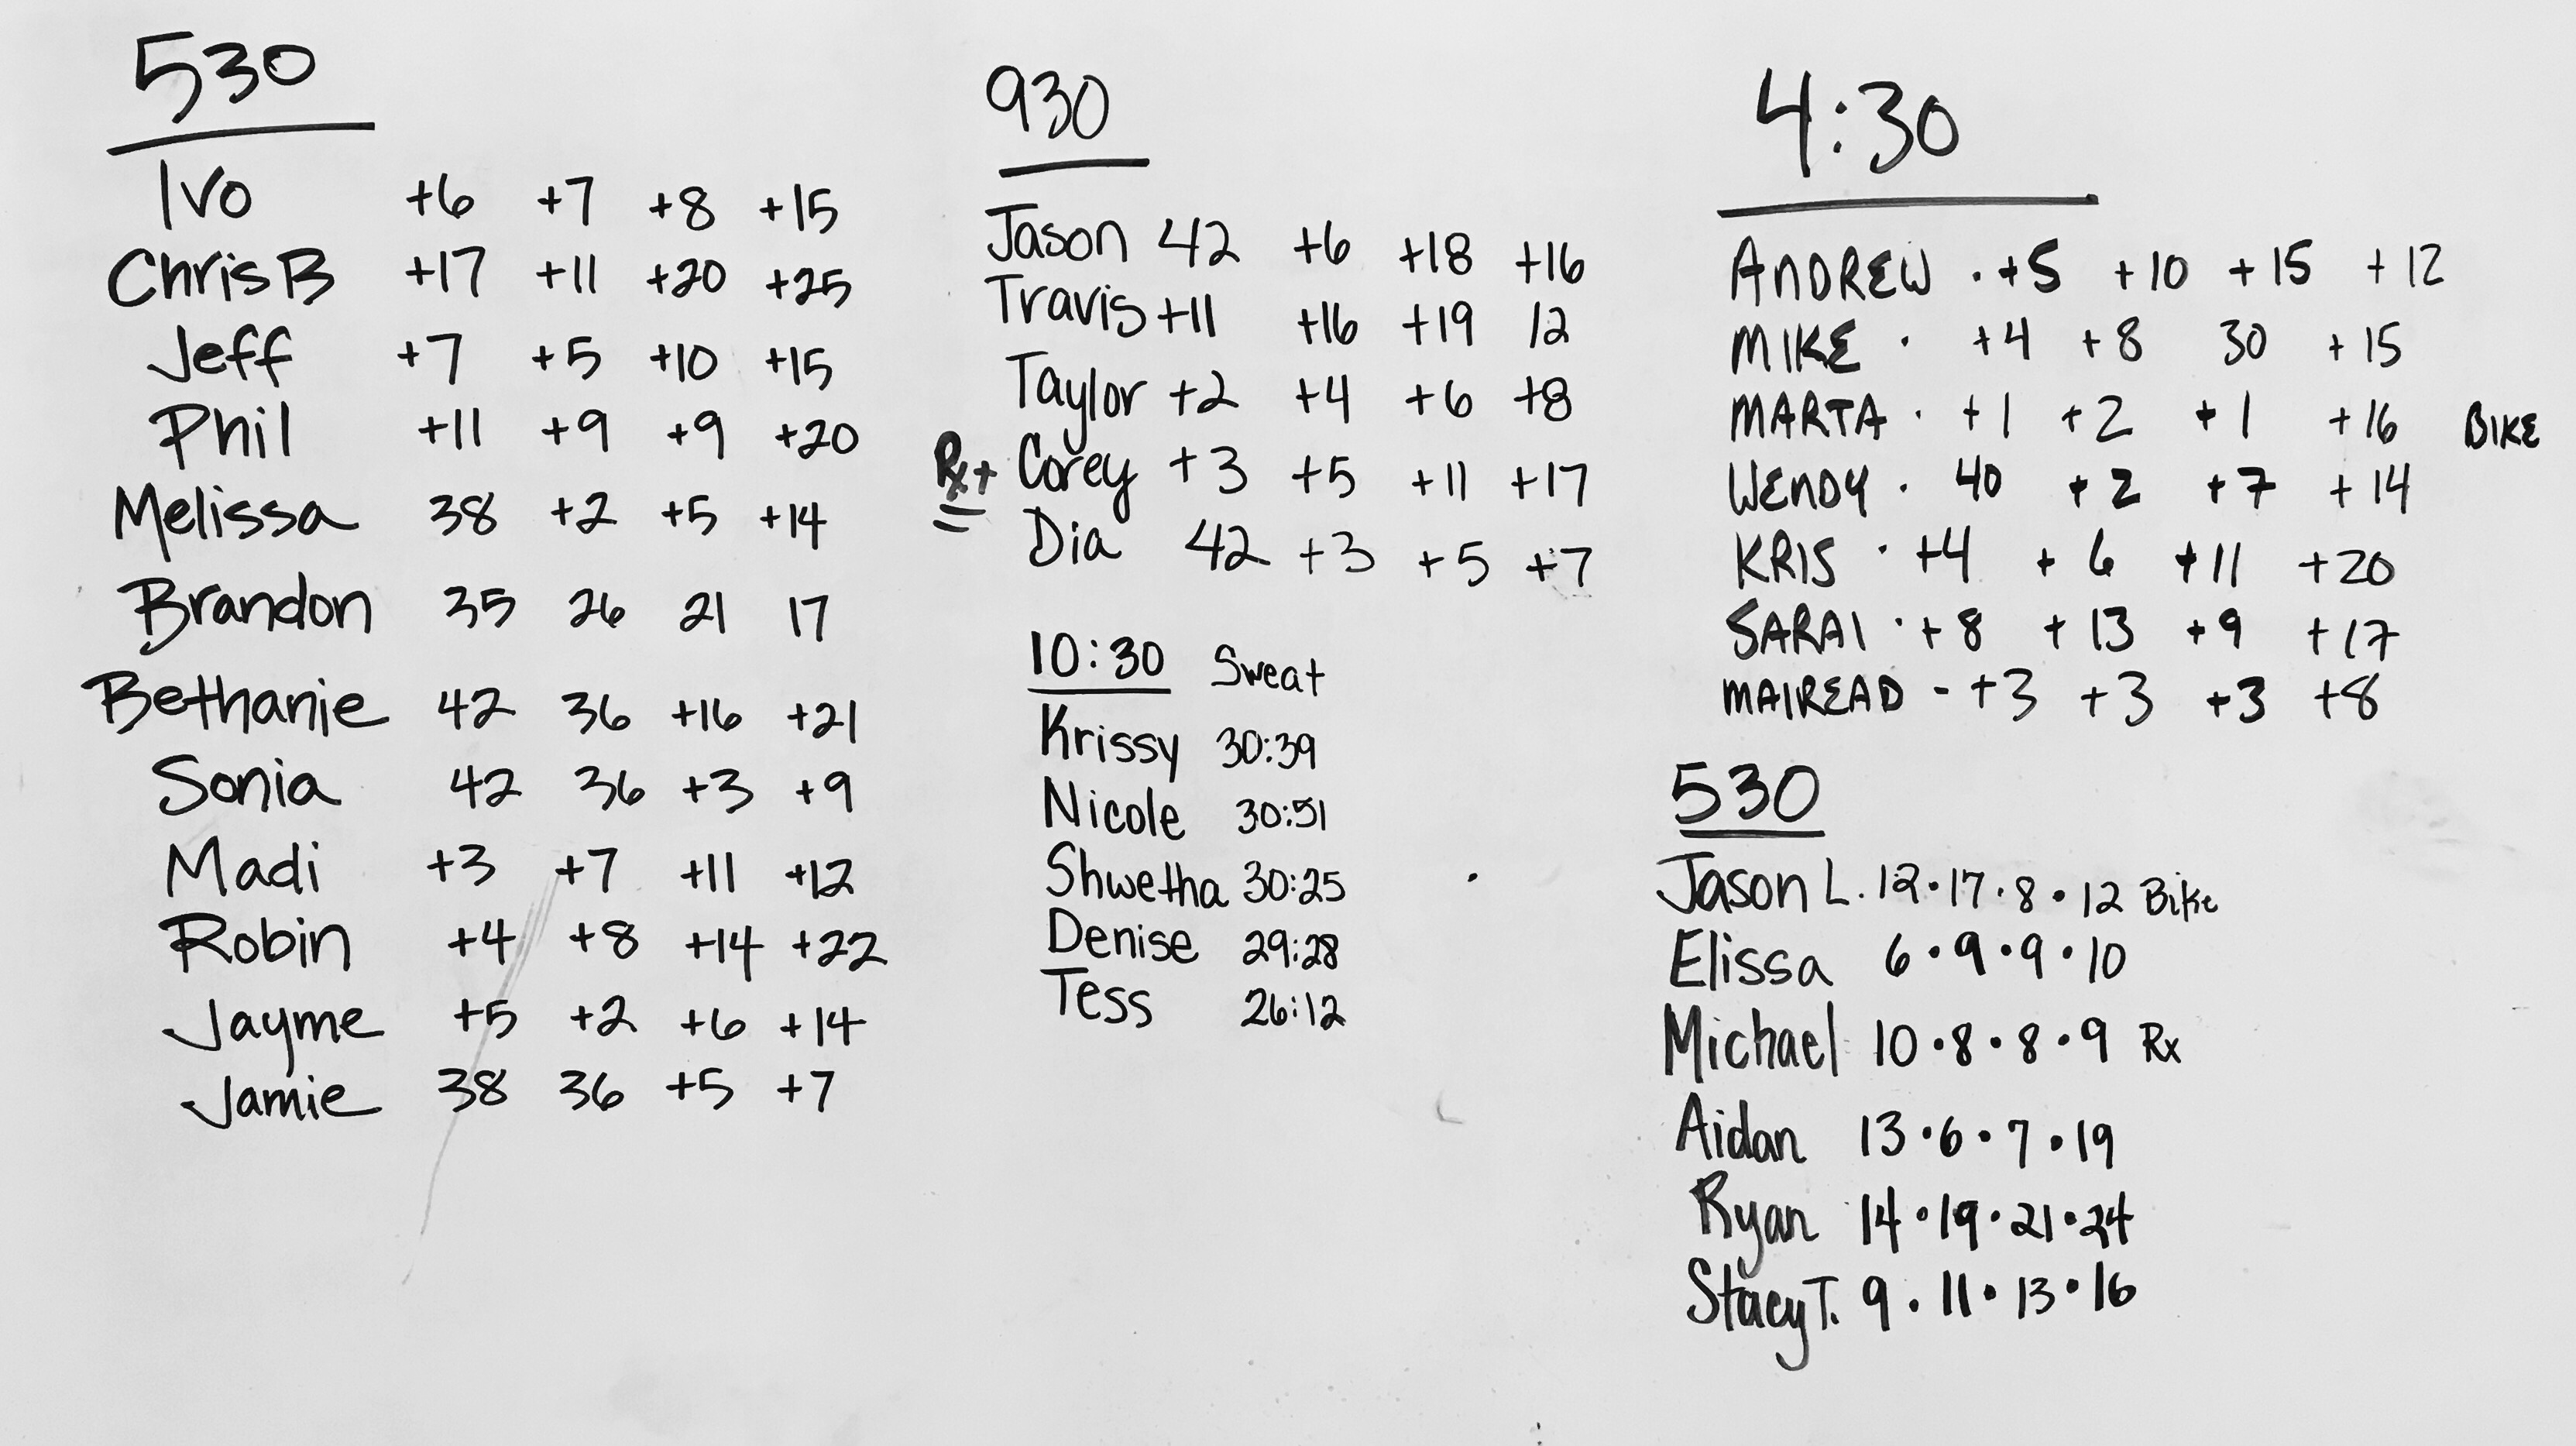 530
Ivo +6 +7 +8 +15
Chris B +17 +11 +20 +25
Jeff +7 +5 +10 +15
Phil +11 +9 +9 +20
Melissa 38 +2 +5 +14
Brandon 35 26 21 17
Bethanie 42 36 +16 +21
Sonia 42 36 +3 +9
Madi +3 +7 +11 +12
Robin +4 +8 +14 +22
Jayme +5 +2 +6 +14
Jamie 38 36 +5 +7
930
Jason 42 +6 +18 +16
Travis +11 +16 +19 12
Taylor +2 +4 +6 +8
Rx+ Corey +3 +5 +11 +17
Dia 42 +3 +5 +7
10:30 Sweat
Krissy 30:39
Nicole 30:51
Shwetha 30:25
Denise 29:28
Tess 26:12
4:30
ANDREW · +5 +10 +15 +12
MIKE · +4 +8 30 +15
MARTA · +1 +2 +1 +16 BIKE
WENDY · 40 +2 +7 +14
KRIS · +4 +6 +11 +20
SARAI · +8 +13 +9 +17
MAIREAD - +3 +3 +3 +8
530
Jason L. 12·17·8·12 Bike
Elissa 6·9·9·10
Michael 10·8·8·9 Rx
Aidan 13·6·7·19
Ryan 14·19·21·24
Stacy T. 9·11·13·16